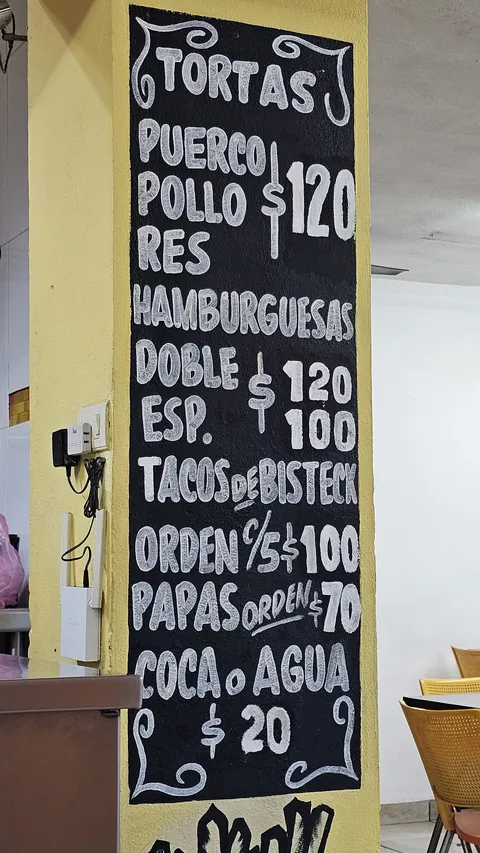 TORTAS
PUERCO
POLLO $120
RES
HAMBURGUESAS
DOBLE $ 120
ESP. 100
TACOS DE BISTECK
ORDEN C/5 $100
PAPAS ORDEN $70
COCA o AGUA
$ 20